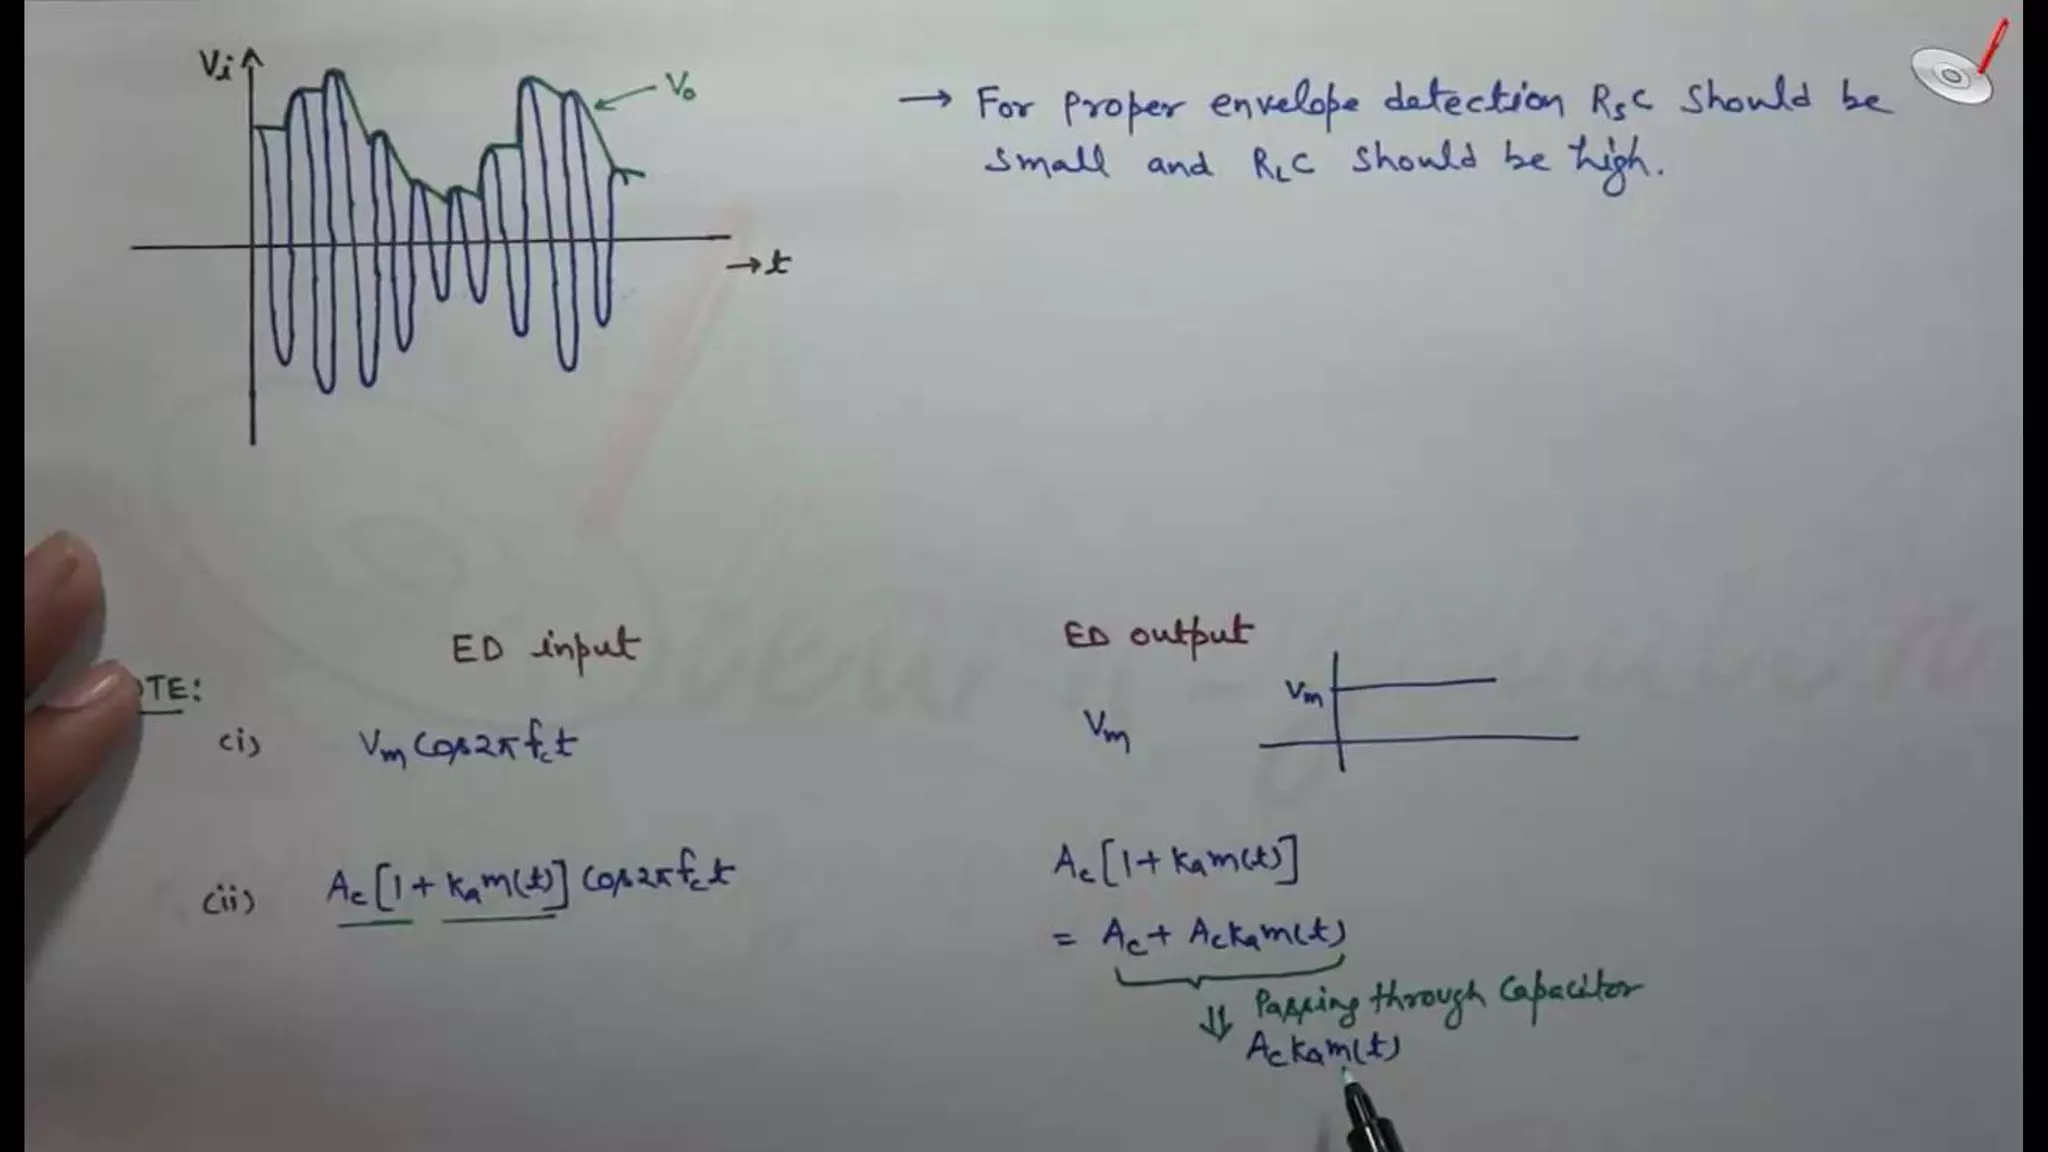 Vi
V₀
→ t
→ For proper envelope detection RₛC should be
small and R_LC should be high.
ED input
ED output
OTE:
(i) Vₘ Cos2πf_ct
Vₘ
Vₘ
(ii) A_c[1 + kₐm(t)] Cos2πf_ct
A_c[1 + kₐm(t)]
= A_c + A_ckₐm(t)
⇓ Passing through Capacitor
A_ckₐm(t)